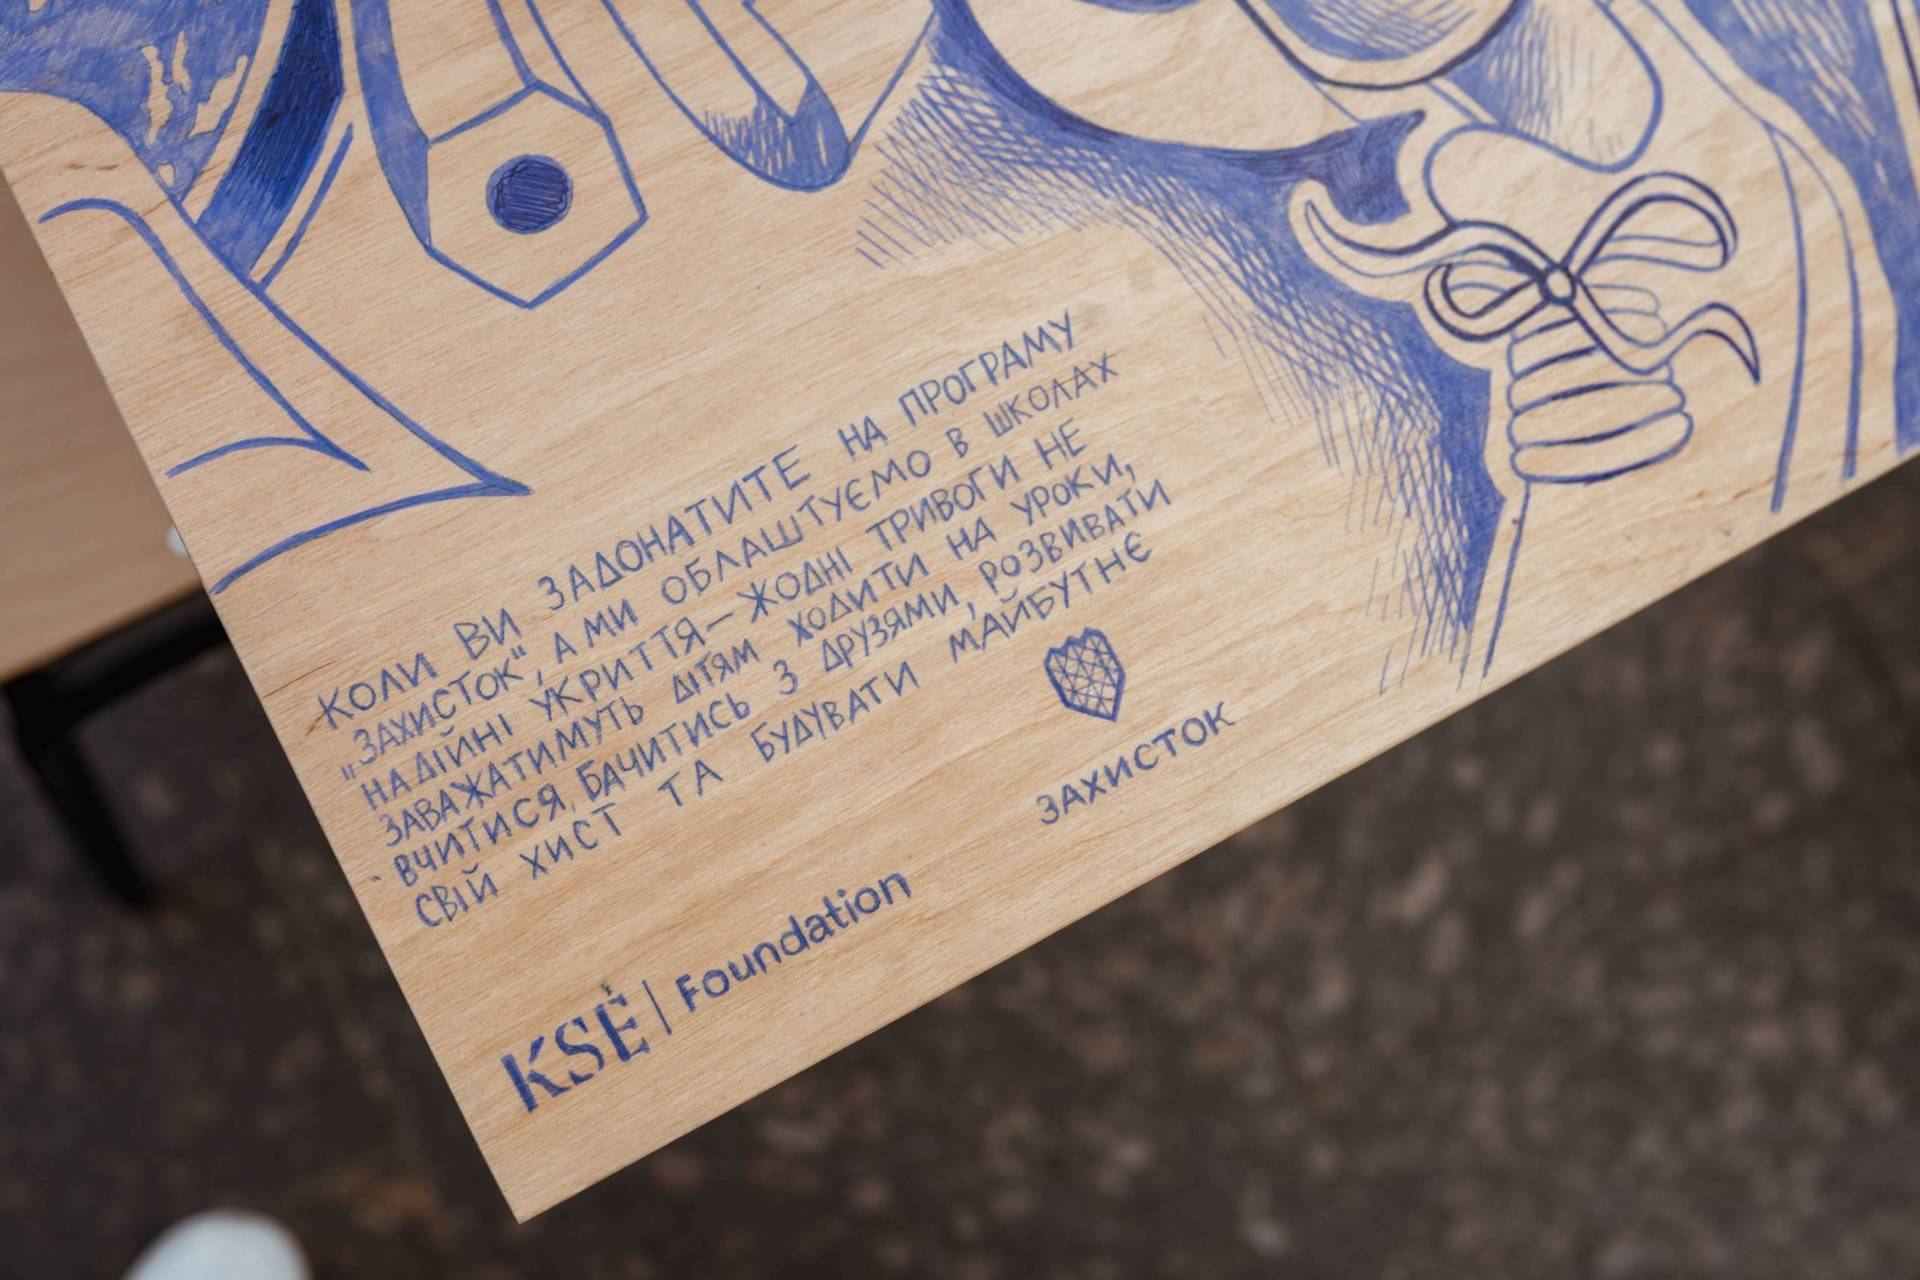 КОЛИ ВИ ЗАДОНАТИТЕ НА ПРОГРАМУ
„ЗАХИСТОК“, А МИ ОБЛАШТУЄМО В ШКОЛАХ
НАДІЙНІ УКРИТТЯ – ЖОДНІ ТРИВОГИ НЕ
ЗАВАЖАТИМУТЬ ДІТЯМ ХОДИТИ НА УРОКИ,
ВЧИТИСЯ, БАЧИТИСЬ З ДРУЗЯМИ, РОЗВИВАТИ
СВІЙ ХИСТ ТА БУДУВАТИ МАЙБУТНЄ
ЗАХИСТОК
KSE | Foundation